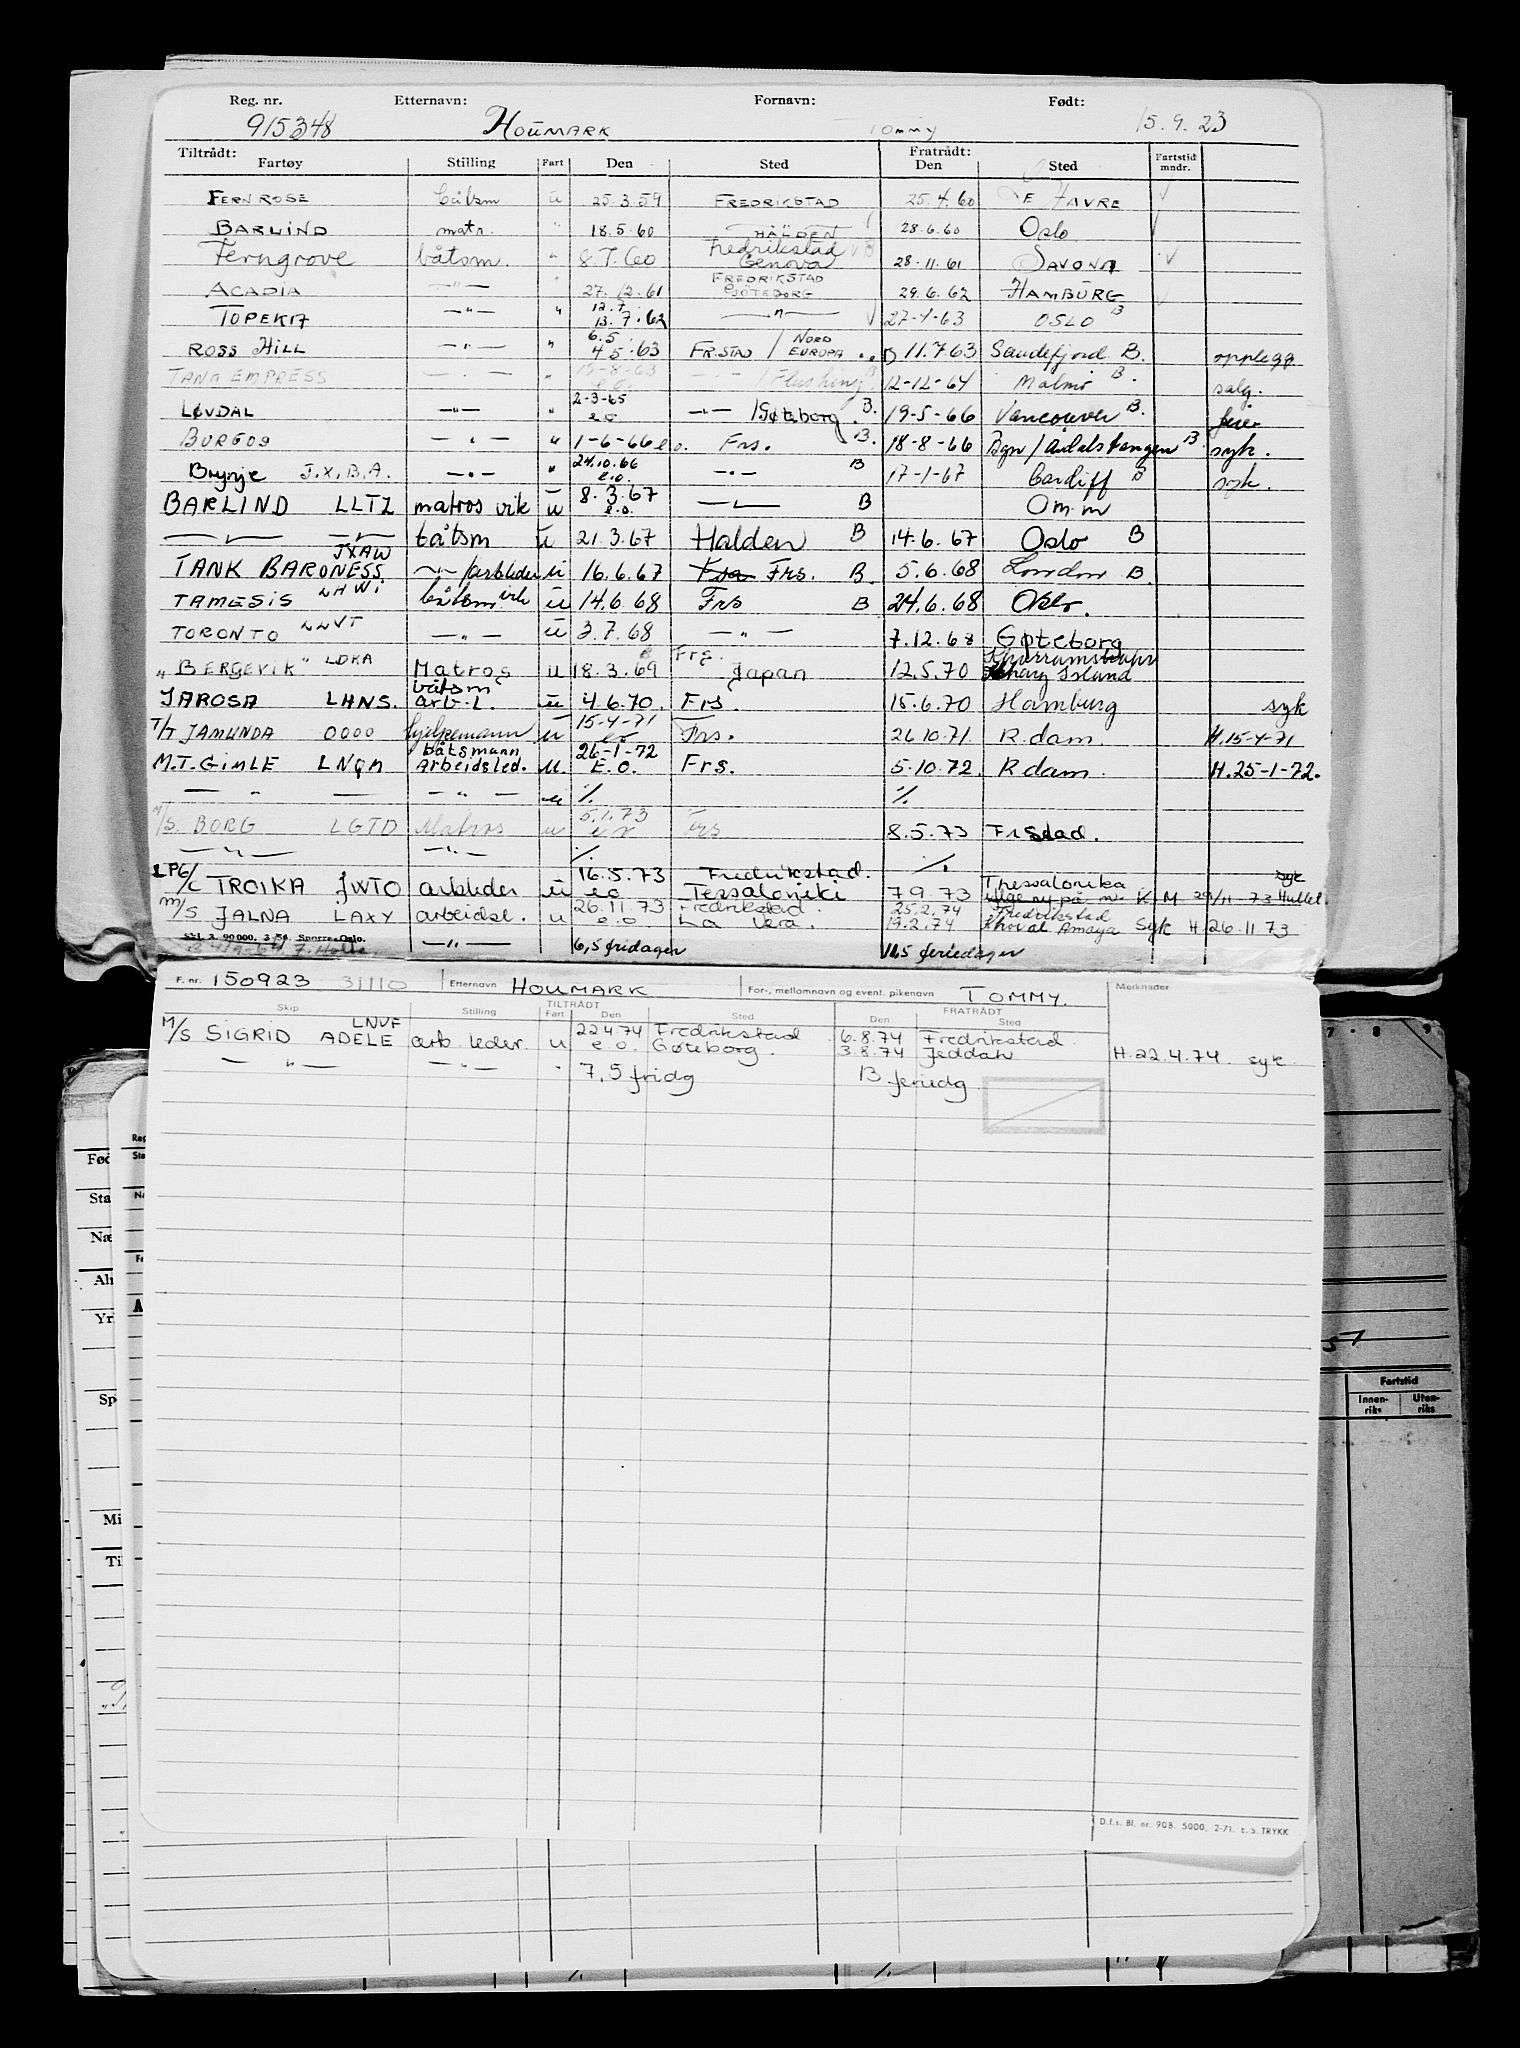 Reg. nr. Etternavn: Fornavn: Født:
915348 HOUMARK TOMMY 15.9.23
Tiltrådt: Fratrådt:
Fartøy Stilling Fart Den Sted Den Sted Fartstid mndr.
FERNROSE båtsm u 25.3.59 FREDRIKSTAD 25.4.60 LE HAVRE
BARLIND matr. " 18.5.60 HALDEN 28.6.60 Oslo
Ferngrove båtsm. " 8.7.60 Fredrikstad Genova 28.11.61 SAVONA
ACADIA —"— " 27.12.61 FREDRIKSTAD GÖTEBORG 29.6.62 HAMBURG
TOPEKA —"— " 12.7 13.7.62 —"— 27-4-63 OSLO B
ROSS HILL —"— " 6.5 4.5.63 FR.STAD / NORD EUROPA B 11.7.63 Sandefjord B. opplegg
TANK EMPRESS —"— " 15-8-63 e.o. —"— / Flushing B. 12-12-64 Malmö B. salg.
LØVDAL —"— " 2-3-65 e.o —"— / Göteborg. B. 19-5-66 Vancouver B. ferie
BURGOS —"— " 1-6-66 e.o. Frs. B. 18-8-66 Bgn / Årdalstangen B. syk.
Brynje J.X.B.A. —"— " 24.10.66 e.o. —"— B 17-1-67 Cardiff B syk.
BARLIND LLTZ matros vik u 8.3.67 e.o. —"— B Om.m
—"— —"— båtsm u 21.3.67 Halden B 14.6.67 Oslo B
TANK BARONESS JXAW —"— /arbleder u 16.6.67 Frs. B. 5.6.68 London B.
TAMESIS LHWI båtsm vik u 14.6.68 Frs B 24.6.68 Oslo.
TORONTO LLVT —"— u 3.7.68 —"— 7.12.68 Gøteborg
"BERGEVIK" LDKA Matros u 18.3.69 Frs. Japan 12.5.70 Kharg Island
JAROSA LHNS. båtsm arb.l. u 4.6.70. Frs. 15.6.70 Hamburg syk
T/T JAMUNDA OOOO hjelpemann u 15-4-71 eo Frs. 26.10.71. R.dam. H.15-4-71
M.T. GIMLE LNQM båtsmann Arbeidsled. u. 26-1-72 E.O. Frs. 5.10.72. R.dam. H.25-1-72.
— " — —"— u ./. ./.
M/S. BORG LGTD Matros u 5.1.73 e o Frs 8.5.73 Frstad.
— " — —"— ./. ./.
LPG/C TROIKA JWTO arbleder u 16.5.73 eo Fredrikstad. Tessaloniki 7.9.73 Thessalonika K M 29/11-73 Hullet syk
M/S JALNA LAXY arbeidsl. u 26.11.73 e.o Fredrikstad. La Vera. 25.2.74 19.2.74 Fredrikstad Khoval Amaya Syk H.26.11.73
Skj. 3. 90000. 3/56. Sporre-Oslo. —"— 6,5 fridager 16,5 feriedager
F. nr. 150923 31110 Etternavn HOUMARK For-, mellomnavn og event. pikenavn TOMMY. Merknader
TILTRÅDT FRATRÅDT
Skip Stilling Fart Den Sted Den Sted
M/S SIGRID ADELE LNVF arb. leder. u 22.4.74 e.o. Fredrikstad Gøteborg. 6.8.74 3.8.74 Fredrikstad Jeddah H.22.4.74. syk.
— " — —"— " 7,5 fridg 13 feriedg
D.f.s. Bl. nr. 90B. 5000. 2-71. E.S. TRYKK
7 - 8 9
Fartstid
Innenriks Utenriks